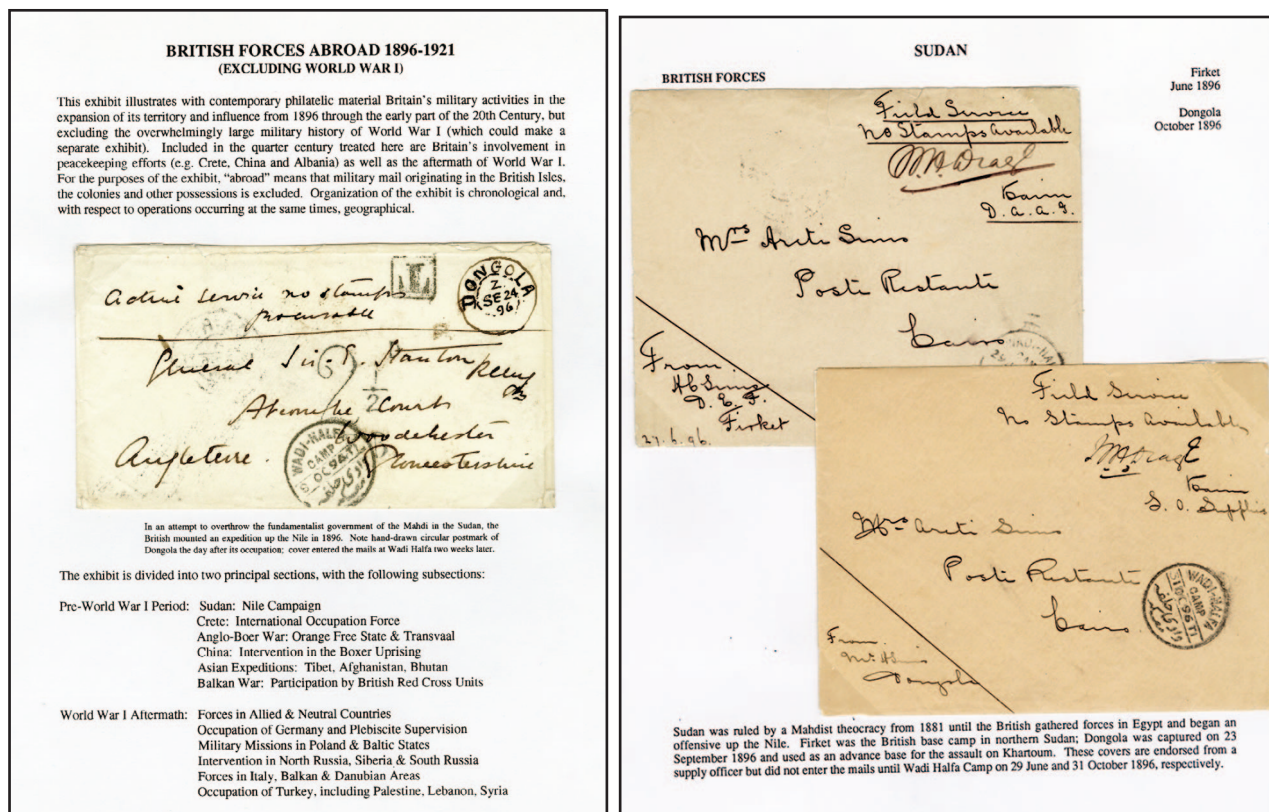 BRITISH FORCES ABROAD 1896-1921
(EXCLUDING WORLD WAR I)
This exhibit illustrates with contemporary philatelic material Britain's military activities in the
expansion of its territory and influence from 1896 through the early part of the 20th Century, but
excluding the overwhelmingly large military history of World War I (which could make a
separate exhibit). Included in the quarter century treated here are Britain's involvement in
peacekeeping efforts (e.g. Crete, China and Albania) as well as the aftermath of World War I.
For the purposes of the exhibit, "abroad" means that military mail originating in the British Isles,
the colonies and other possessions is excluded. Organization of the exhibit is chronological and,
with respect to operations occurring at the same times, geographical.
T
DONGOLA
Z
SE 24
96
Active service no stamps
procurable
General Sir E. Stanton
1/2
Court
Woodchester
Angleterre. Gloucestershire
WADI-HALFA
CAMP
OC 96 T1
In an attempt to overthrow the fundamentalist government of the Mahdi in the Sudan, the
British mounted an expedition up the Nile in 1896. Note hand-drawn circular postmark of
Dongola the day after its occupation; cover entered the mails at Wadi Halfa two weeks later.
The exhibit is divided into two principal sections, with the following subsections:
Pre-World War I Period: Sudan: Nile Campaign
Crete: International Occupation Force
Anglo-Boer War: Orange Free State & Transvaal
China: Intervention in the Boxer Uprising
Asian Expeditions: Tibet, Afghanistan, Bhutan
Balkan War: Participation by British Red Cross Units
World War I Aftermath: Forces in Allied & Neutral Countries
Occupation of Germany and Plebiscite Supervision
Military Missions in Poland & Baltic States
Intervention in North Russia, Siberia & South Russia
Forces in Italy, Balkan & Danubian Areas
Occupation of Turkey, including Palestine, Lebanon, Syria
SUDAN
BRITISH FORCES
Firket
June 1896
Dongola
October 1896
Field Service
No Stamps Available
W.H. Drage
D.A.A.G.
Mrs Areti Sims
Poste Restante
Cairo
From
H C Sims
D. E. F.
Firket
27.6.96.
Field Service
No Stamps Available
W H Drage
S. O. Supplies
Mrs Areti Sims
Poste Restante
Cairo.
WADI-HALFA
CAMP
31 OC 96 T1
وادى حلفه
From
Mr H Sims
Dongola
Sudan was ruled by a Mahdist theocracy from 1881 until the British gathered forces in Egypt and began an
offensive up the Nile. Firket was the British base camp in northern Sudan; Dongola was captured on 23
September 1896 and used as an advance base for the assault on Khartoum. These covers are endorsed from a
supply officer but did not enter the mails until Wadi Halfa Camp on 29 June and 31 October 1896, respectively.